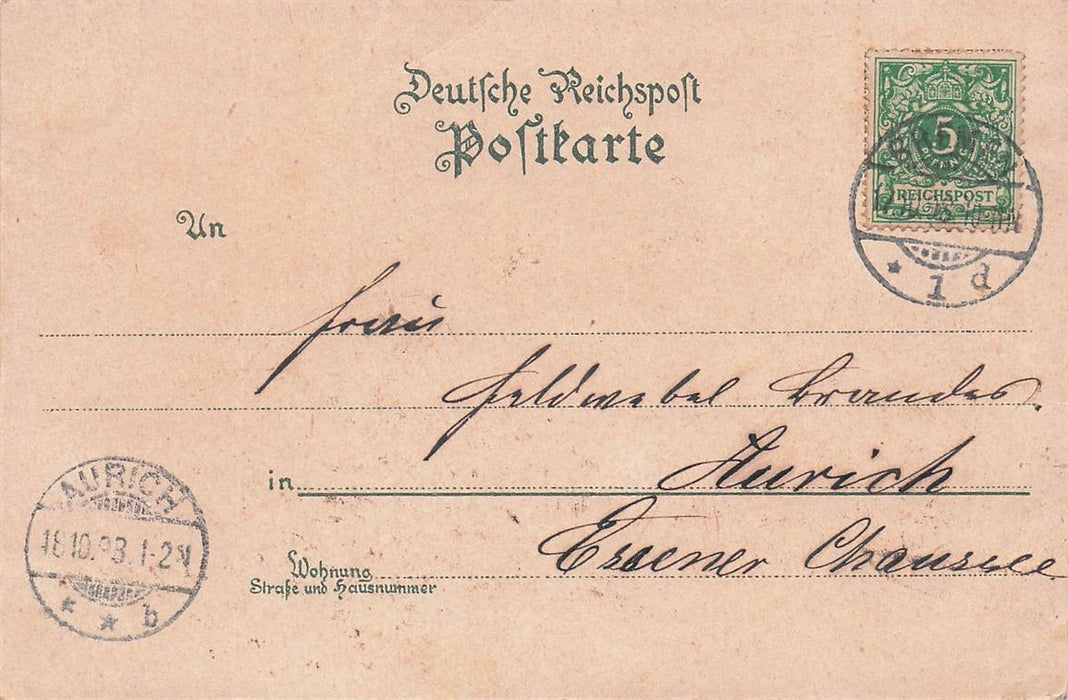 Deutsche Reichspost
Postkarte
5
REICHSPOST
An
1 d
Frau
Feldwebel Brandes.
in Aurich
Esener Chaussee
Wohnung
Straße und Hausnummer
AURICH
18.10.98. 1-2N
* * b